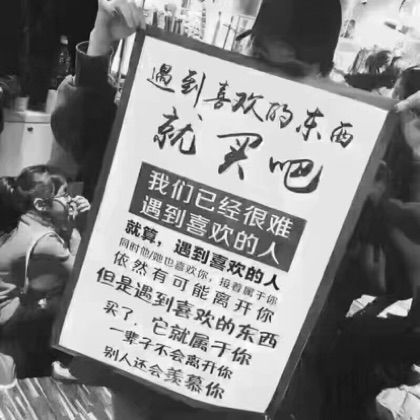 遇到喜欢的东西
就买吧
我们已经很难
遇到喜欢的人
就算，遇到喜欢的人
同时他/她也喜欢你，接着属于你
依然有可能离开你
但是遇到喜欢的东西
买了，它就属于你
一辈子不会离开你
别人还会羡慕你